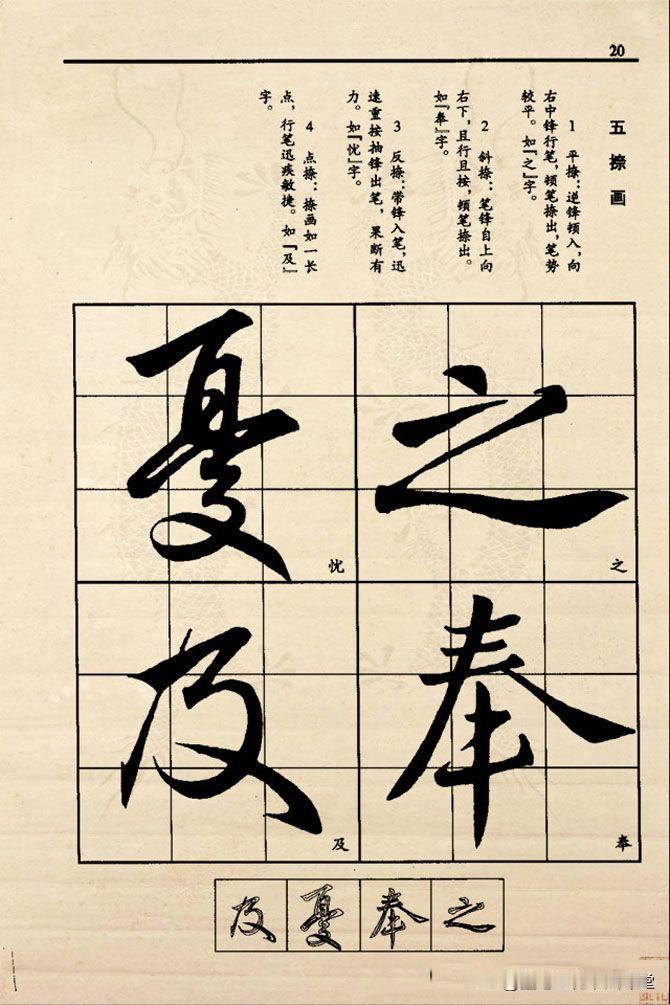 20
五 捺画
1 平捺：逆锋顿入，向
右中锋行笔，顿笔捺出，笔势
较平。如『之』字。
2 斜捺：笔锋自上向
右下，且行且按，顿笔捺出。
如『奉』字。
3 反捺：带锋入笔，迅
速重按抽锋出笔，果断有
力。如『忧』字。
4 点捺：捺画如一长
点，行笔迅疾敏捷。如『及』
字。
之
之
奉
奉
憂
忧
及
及
之
奉
憂
及